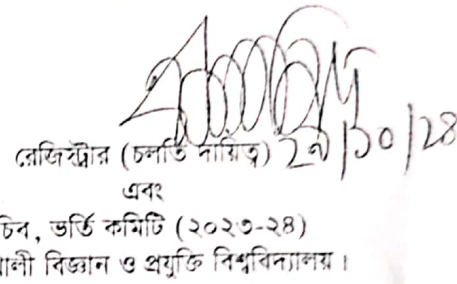 রেজিস্ট্রার (চলতি দায়িত্ব) ২৯/১০/২৪
এবং
চিব, ভর্তি কমিটি (২০২৩-২৪)
বিজ্ঞান ও প্রযুক্তি বিশ্ববিদ্যালয়।